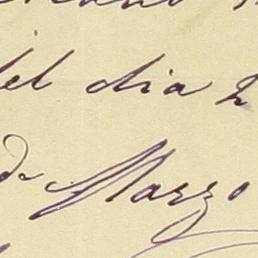 del dia 2
de Marzo